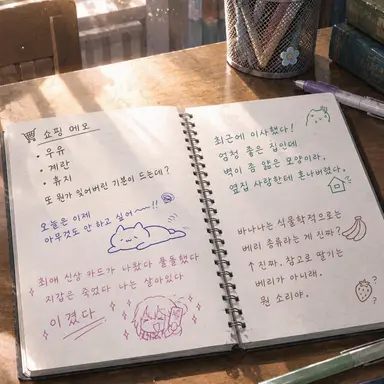 쇼핑 메모
• 우유
• 계란
• 휴지
또 뭔가 잊어버린 기분이 드는데?
오늘은 이제
아무것도 안 하고 싶어~~!!
최애 신상 카드가 나왔다 풀돌했다
지갑은 죽었다 나는 살아있다
이겼다
최근에 이사했다!
엄청 좋은 집인데
벽이 좀 얇은 모양이라,
옆집 사람한테 혼나버렸다.
바나나는 식물학적으로는
베리 종류라는 게 진짜?
↑ 진짜. 참고로 딸기는
베리가 아니래.
뭔 소리야.